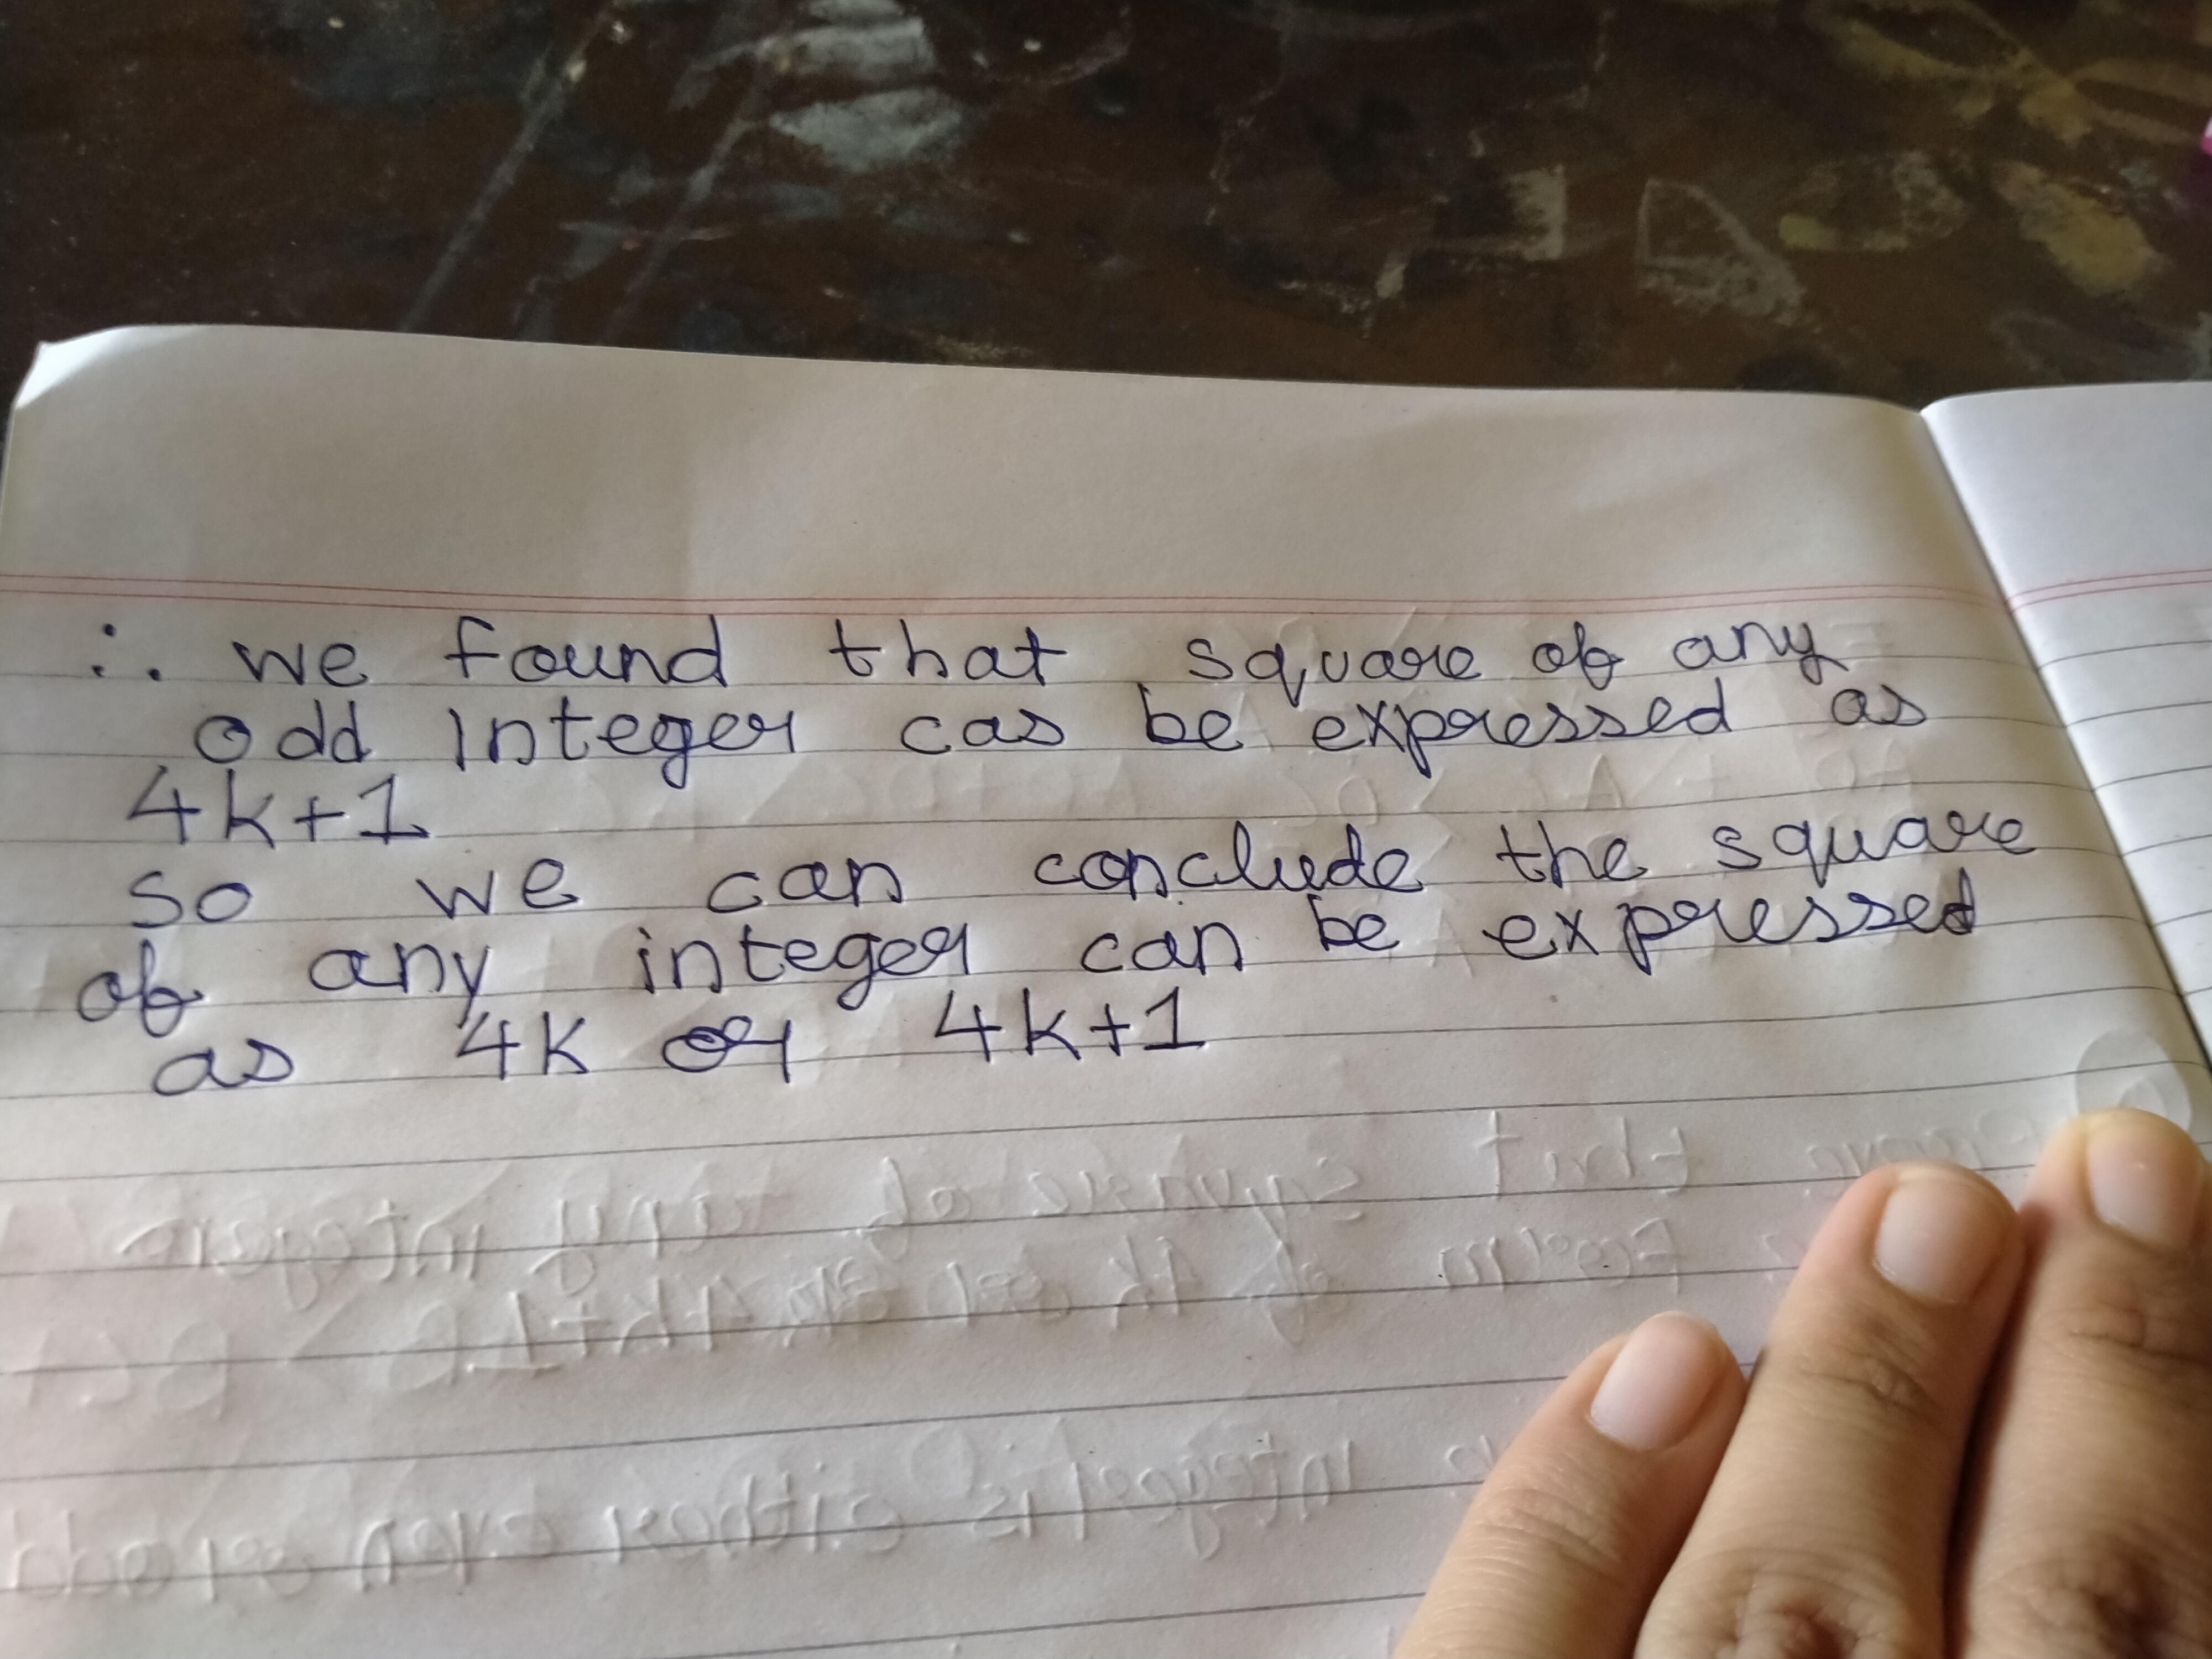 ∴ we found that square of any
odd Integer cas be expressed as
4k+1
so we can conclude the square
of any integer can be expressed
as 4k or 4k+1